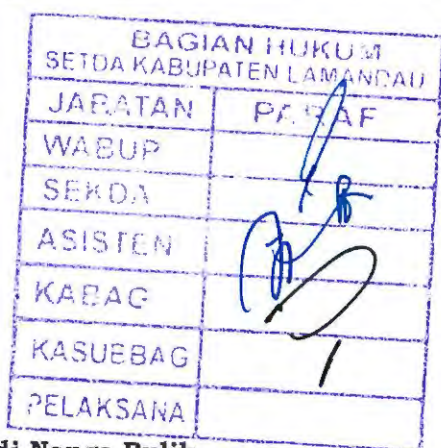 BAGIAN HUKUM
SETDA KABUPATEN LAMANDAU
JABATAN PARAF
WABUP
SEKDA
ASISTEN
KABAG
KASUBBAG
PELAKSANA
di Nanga Bulik